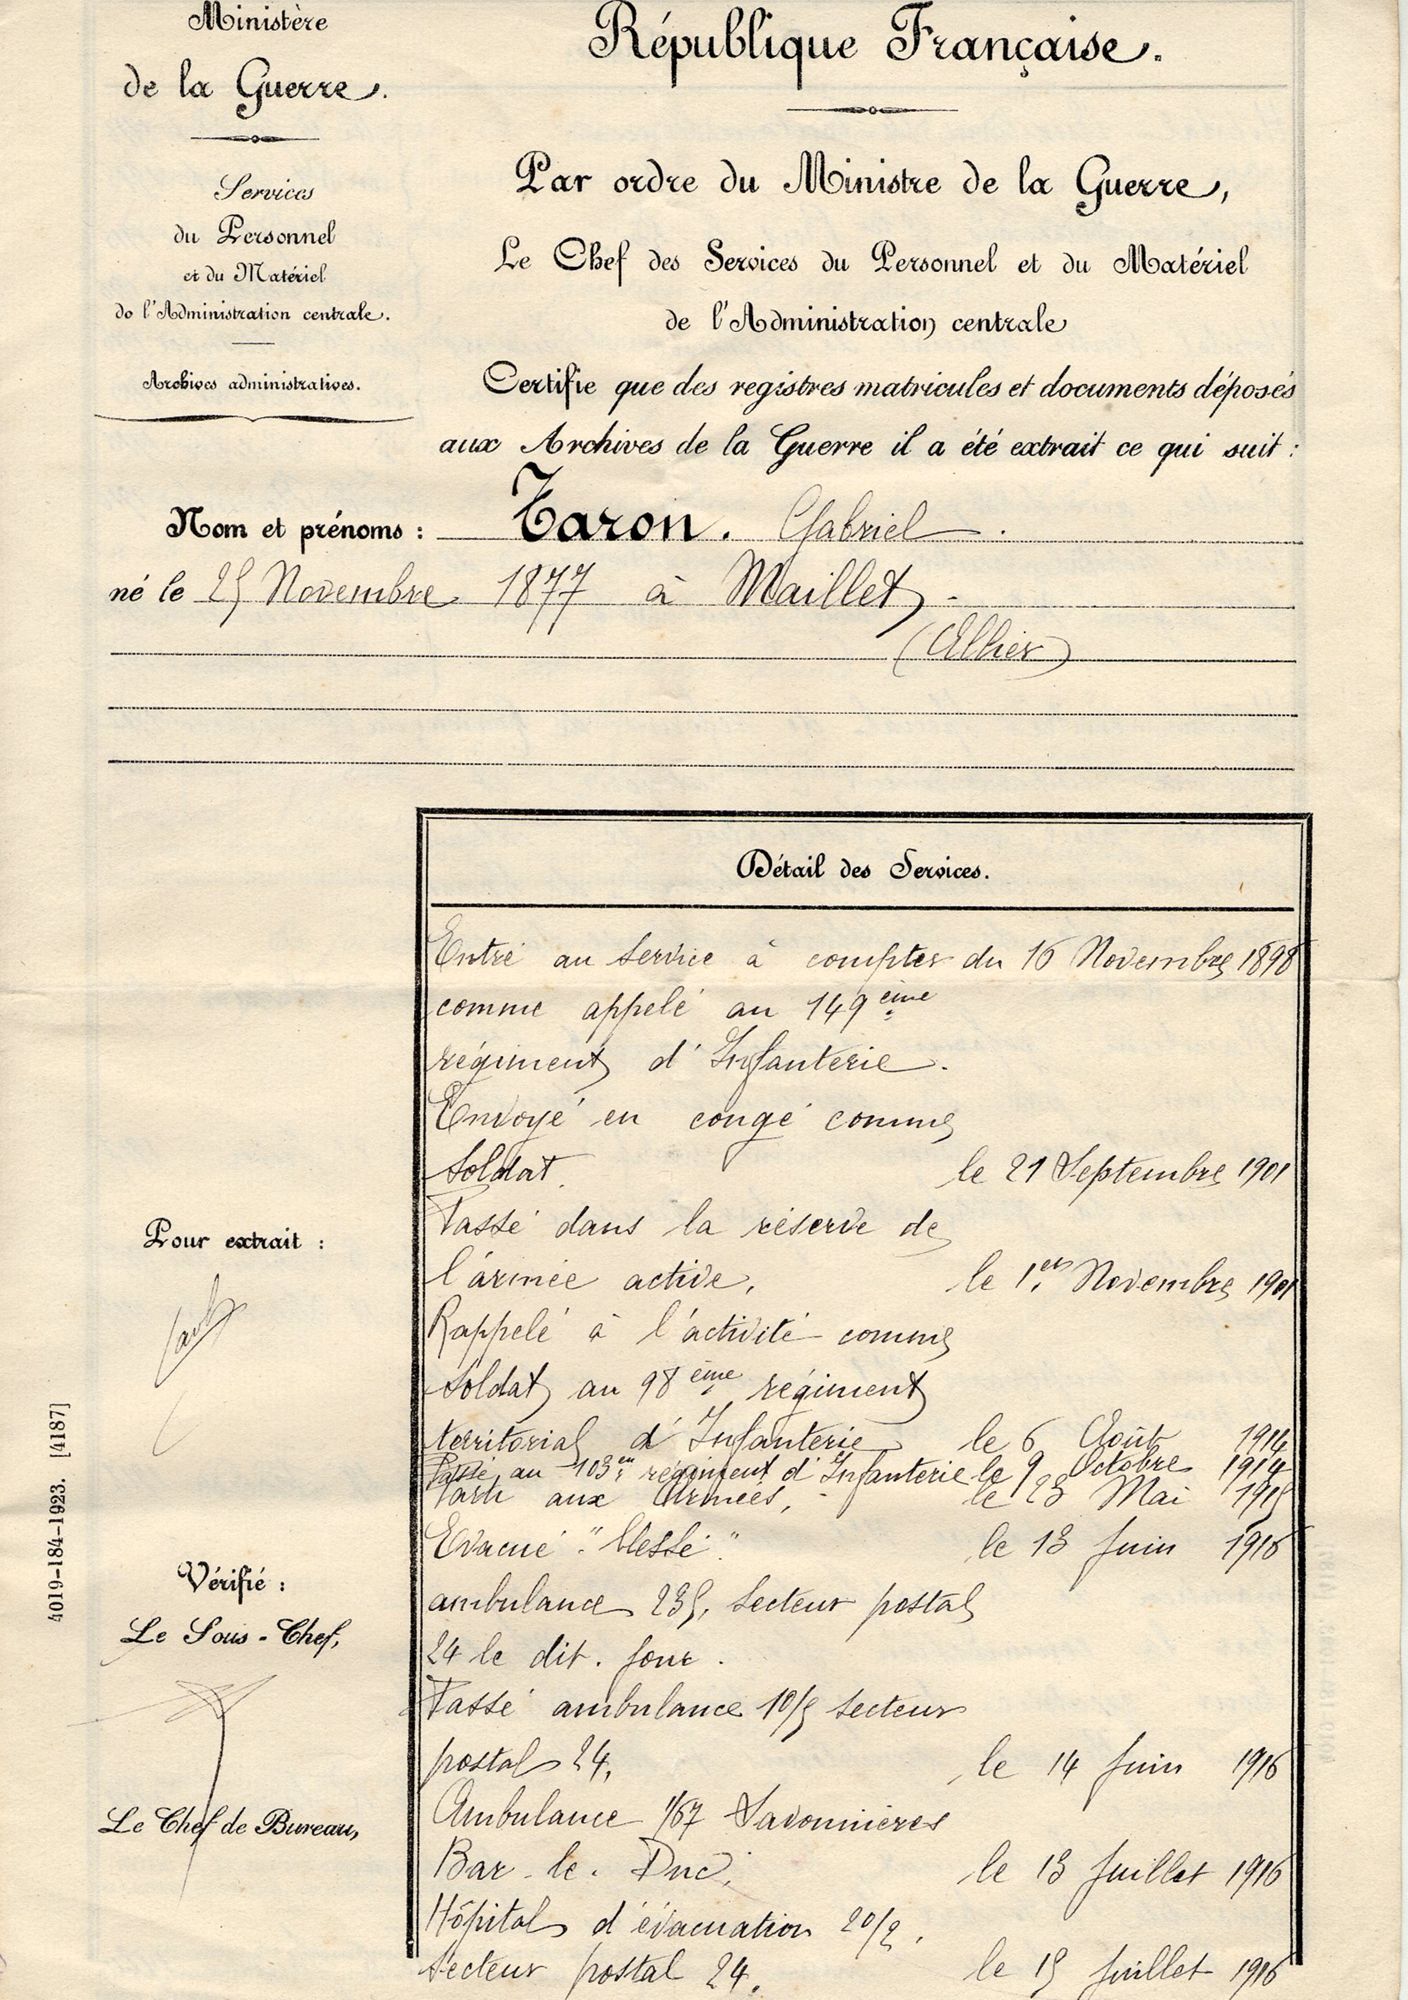 Ministère
de la Guerre.
Services
du Personnel
et du Matériel
de l'Administration centrale.
Archives administratives.
République Française.
Par ordre du Ministre de la Guerre,
Le Chef des Services du Personnel et du Matériel
de l'Administration centrale
Certifie que des registres matricules et documents déposés
aux Archives de la Guerre il a été extrait ce qui suit :
Nom et prénoms : Taron. Gabriel.
né le 25 Novembre 1877 à Maillet.
(Allier)
Détail des Services.
Entré au service à compter du 16 Novembre 1898
comme appelé au 149ème
régiment d'Infanterie.
Envoyé en congé comme
soldat. le 21 Septembre 1901
Passé dans la réserve de
l'armée active, le 1er Novembre 1901
Rappelé à l'activité comme
soldat au 98ème régiment
territorial d'Infanterie le 6 Août 1914
Passé au 103e régiment d'Infanterie le 9 Octobre 1914
Parti aux Armées, le 23 Mai 1915
Evacué "blessé" le 13 Juin 1916
ambulance 235, secteur postal
24 le dit. jour.
Passé ambulance 10/5 secteur
postal 24, le 14 Juin 1916
Ambulance 1/67 Savonnières
Bar-le-Duc, le 13 Juillet 1916
Hôpital d'évacuation 20/2.
Secteur postal 24. le 15 Juillet 1916
Pour extrait :
Vérifié :
Le Sous-Chef,
Le Chef de Bureau,
4019-184-1923. [4187]